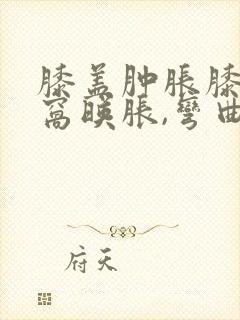 膝盖肿胀膝
窝䀹胀,弯曲
府天